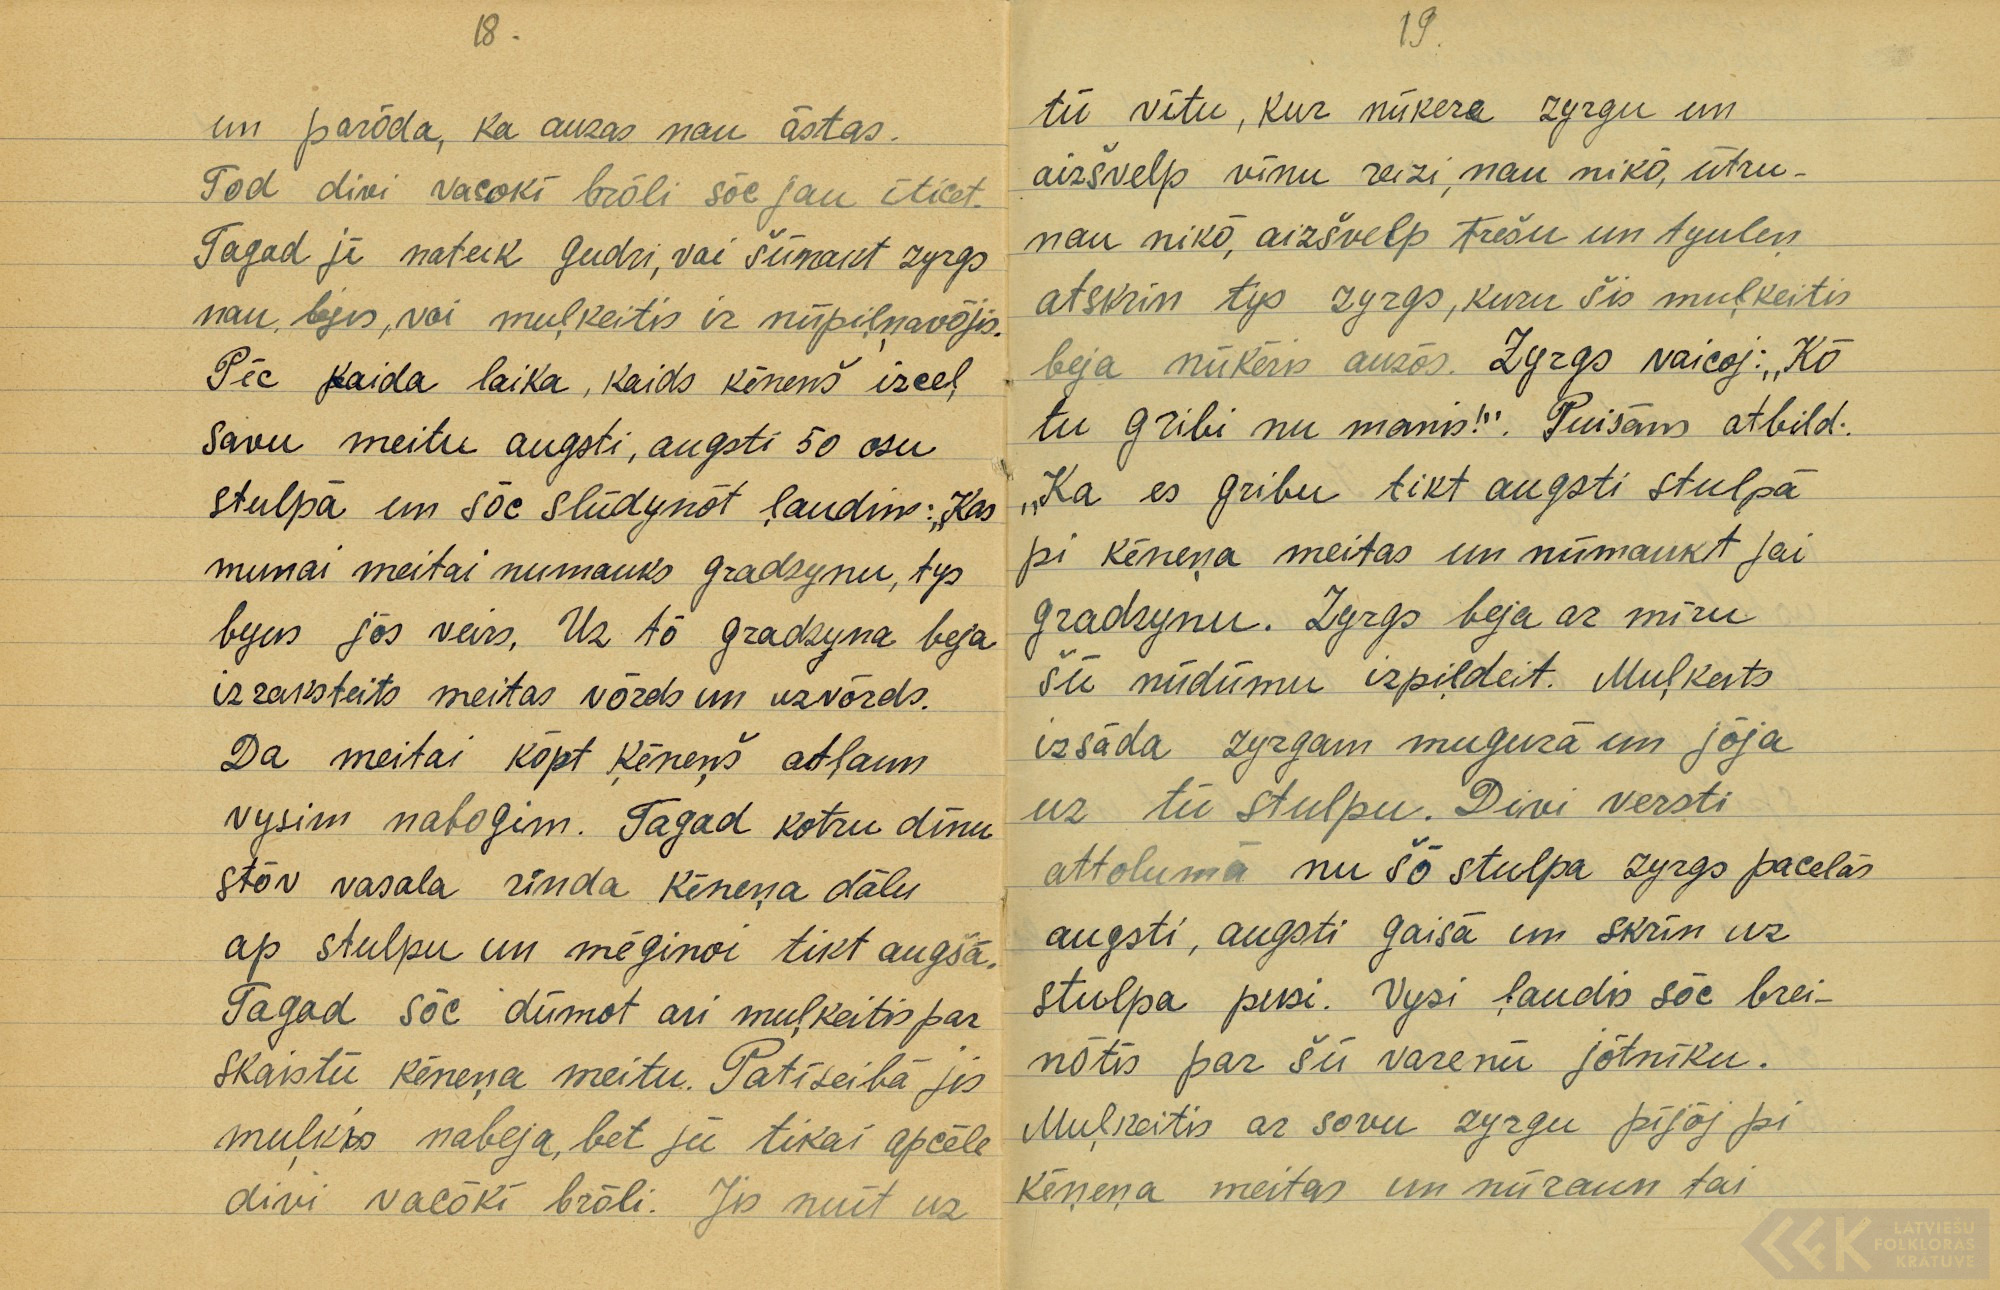 18.
un parōda, ka auzas nau āstas.
Tod divi vacokī brōli sōc jau īticēt.
Tagad jī nateik gudri, vai šūnakt zyrgs
nau bejis, voi muļķeitis ir nūpiļņavōjis.
Pēc kaida laika, kaids ķēneņš izceļ
savu meitu augsti, augsti 50 osu
stulpā un sōc slūdynōt ļaudim: „Kas
munai meitai numauks gradzynu, tys
byus jōs veirs. Uz tō gradzyna beja
izraksteits meitas vōrds un uzvōrds.
Da meitai kōpt ķēneņš atļaun
vysim nabogim. Tagad kotru dīnu
stōv vasala rīnda ķēneņa dālu
ap stulpu un mēginoi tikt augšā.
Tagad sōc dūmot ari muļķeitis par
skaistū ķēneņa meitu. Patīseibā jis
muļkis nabeja, bet jū tikai apcēle
divi vacōkī brōli. Jis nuit uz
19.
tū vītu, kur nūkera zyrgu un
aizšvelp vīnu reizi, nau nikō, ūtru-
nau nikō, aizšvelp trešu un tyuleņ
atskrīn tys zyrgs, kuru šis muļķeitis
beja nūkēris auzōs. Zyrgs vaicoj: „Kō
tu gribi nu manis!". Puisāns atbild:.
„Ka es gribu tikt augsti stulpā
pi ķēneņa meitas un nūmaukt jai
gradzynu. Zyrgs beja ar mīru
šū nūdūmu izpiļdeit. Muļķeits
izsāda zyrgam mugurā un jōja
uz tū stulpu. Divi versti
attolumā nu šō stulpa zyrgs pacelās
augsti, augsti gaisā un skrīn uz
stulpa pusi. Vysi ļaudis sōc brei-
nōtīs par šū varenū jōtnīku.
Muļķeitis ar sovu zyrgu pījōj pi
ķēņeņa meitas un nūraun tai
LATVIEŠU
FOLKLORAS
KRĀTUVE